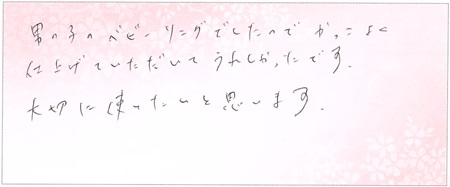 男の子のベビーリングでしたので かっこよく
仕上げていただいて うれしかったです.
大切に使ったいと思います.